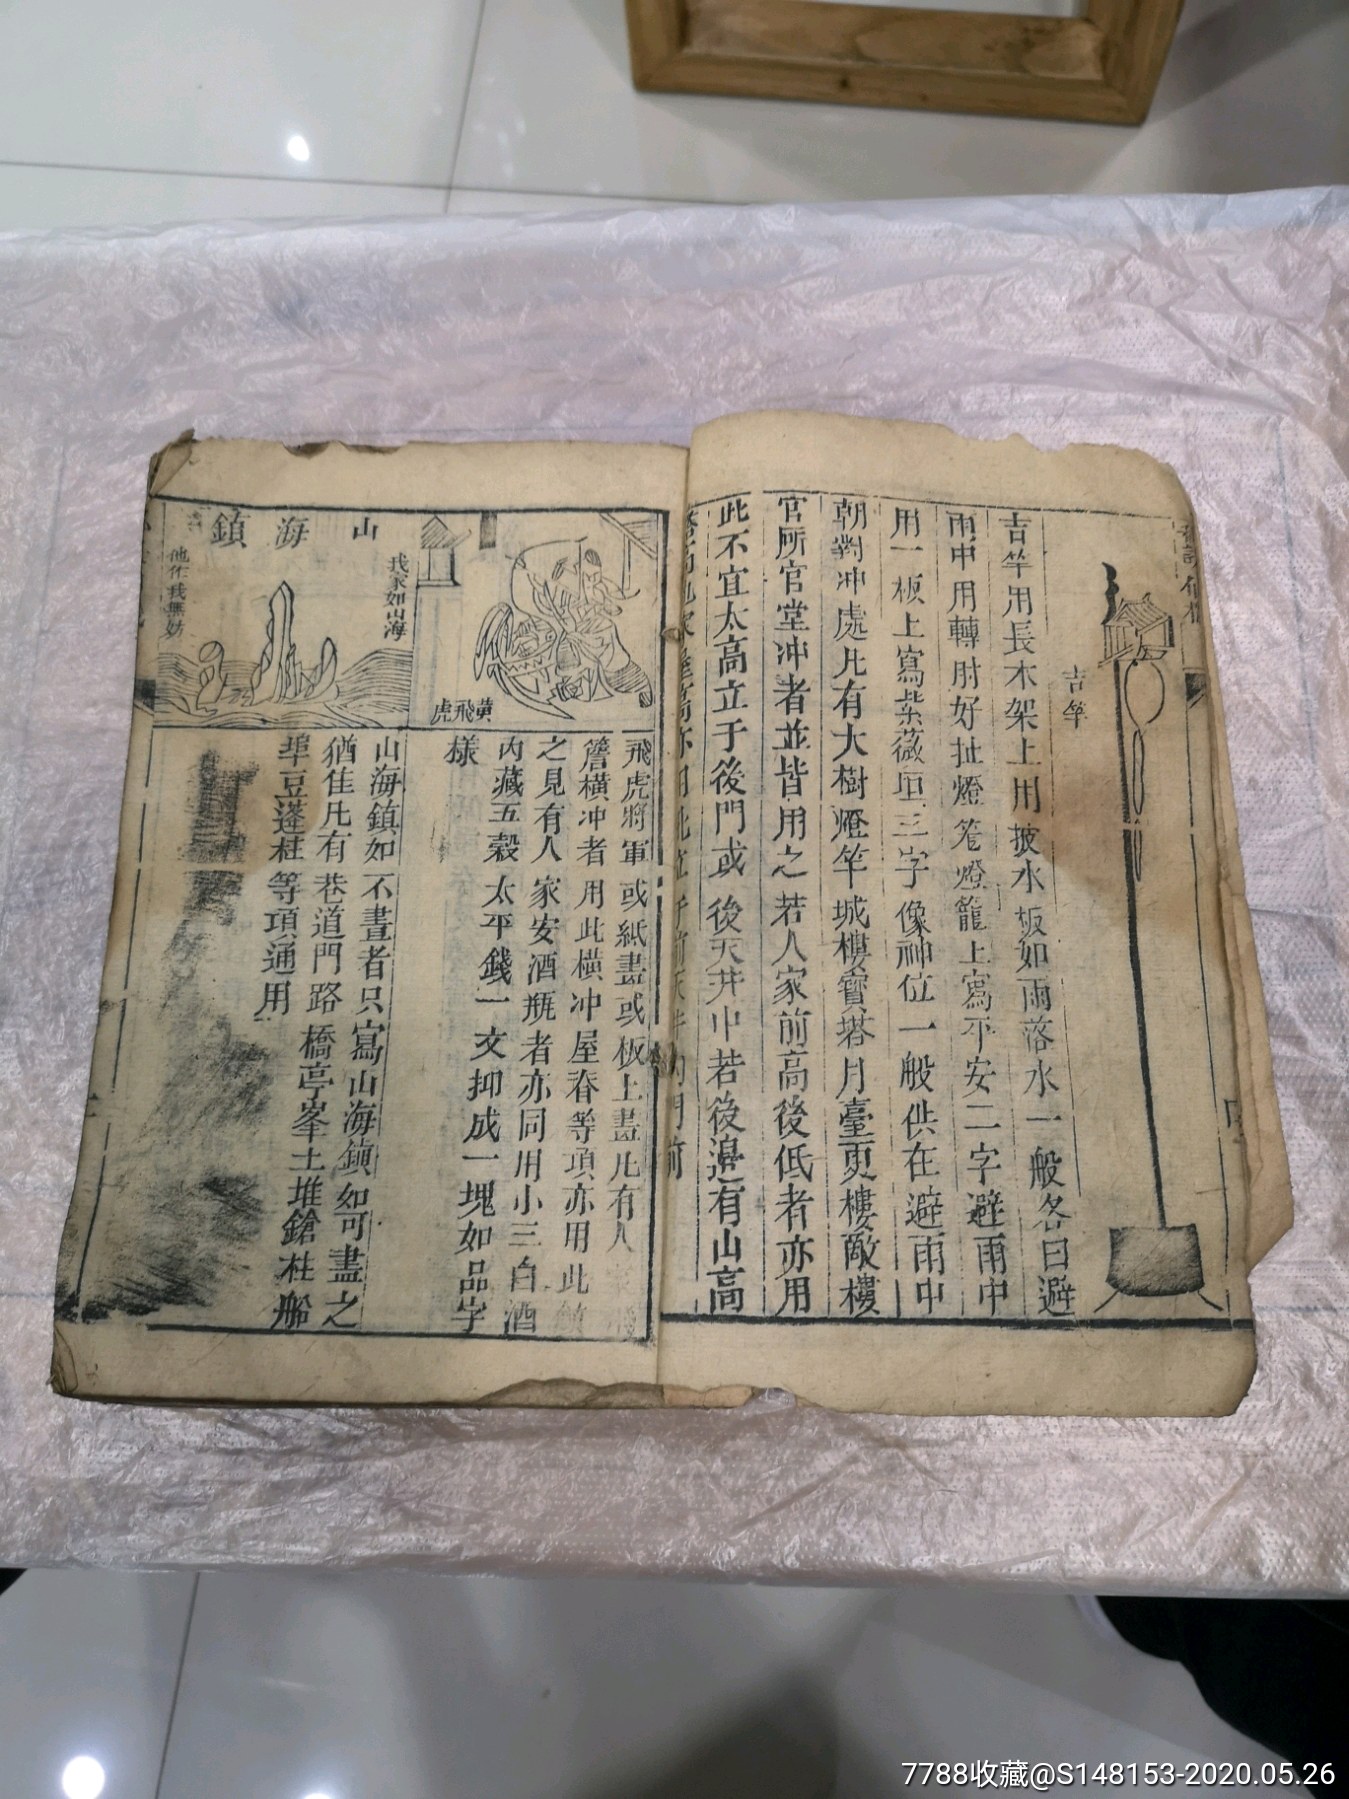 吉竿
吉竿用長木架上用披水板如雨落水一般各曰避
雨中用轉肘好扯燈笼燈籠上寫平安二字避雨中
用一板上寫紫薇垣三字像神位一般供在避雨中
朝對冲處凡有大樹燈竿城樓寶塔月臺更樓敵樓
官所官堂冲者並皆用之若人家前高後低者亦用
此不宜太高立于後門或後天井中若後邉有山高
黃飛虎
飛虎將軍或紙畫或板上畫凡有人
簷橫冲者用此橫冲屋脊等項亦用此
之見有人家安酒瓶者亦同用小三白酒
内藏五穀太平錢一文抑成一塊如品字
様
山海鎮
我家如山海
他作我無妨
山海鎮如不畫者只寫山海鎮如可畫之
猶佳凡有巷道門路橋亭峯土堆鎗柱船
埠豆蓬柱等項通用
7788收藏@S148153-2020.05.26